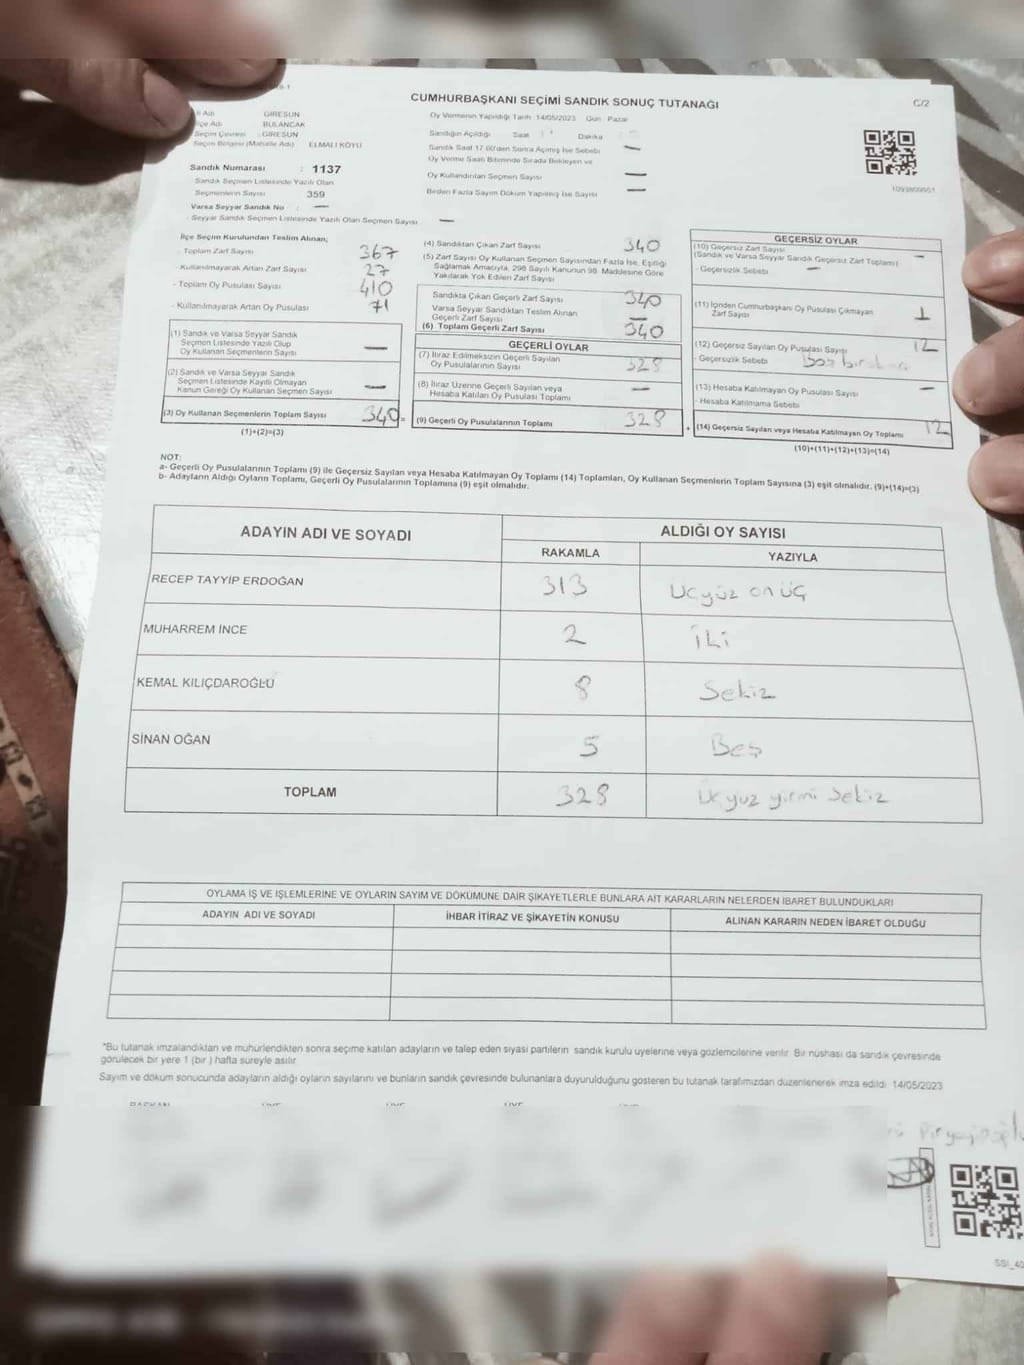 CUMHURBAŞKANI SEÇİMİ SANDIK SONUÇ TUTANAĞI
C/2
İl Adı GİRESUN
İlçe Adı BULANCAK
Seçim Çevresi : GİRESUN
Seçim Bölgesi (Mahalle Adı) ELMALI KÖYÜ
Sandık Numarası : 1137
Sandık Seçmen Listesinde Yazılı Olan
Seçmenlerin Sayısı 359
Varsa Seyyar Sandık No : —
- Seyyar Sandık Seçmen Listesinde Yazılı Olan Seçmen Sayısı —
Oy Vermenin Yapıldığı Tarih : 14/05/2023 Gün : Pazar
Sandığın Açıldığı Saat Dakika
Sandık Saat 17.00'den Sonra Açılmış İse Sebebi —
Oy Verme Saati Bitiminde Sırada Bekleyen ve
Oy Kullandırılan Seçmen Sayısı —
Birden Fazla Sayım Döküm Yapılmış İse Sayısı —
İlçe Seçim Kurulundan Teslim Alınan;
- Toplam Zarf Sayısı 367
- Kullanılmayarak Artan Zarf Sayısı 27
- Toplam Oy Pusulası Sayısı 410
- Kullanılmayarak Artan Oy Pusulası 71
(1) Sandık ve Varsa Seyyar Sandık
Seçmen Listesinde Yazılı Olup
Oy Kullanan Seçmenlerin Sayısı —
(2) Sandık ve Varsa Seyyar Sandık
Seçmen Listesinde Kayıtlı Olmayan
Kanun Gereği Oy Kullanan Seçmen Sayısı —
(3) Oy Kullanan Seçmenlerin Toplam Sayısı 340 =
(1)+(2)=(3)
(4) Sandıktan Çıkan Zarf Sayısı 340
(5) Zarf Sayısı Oy Kullanan Seçmen Sayısından Fazla İse, Eşitliği
Sağlamak Amacıyla, 298 Sayılı Kanunun 98. Maddesine Göre
Yakılarak Yok Edilen Zarf Sayısı
Sandıkta Çıkan Geçerli Zarf Sayısı 340
Varsa Seyyar Sandıktan Teslim Alınan
Geçerli Zarf Sayısı —
(6) Toplam Geçerli Zarf Sayısı 340
GEÇERLİ OYLAR
(7) İtiraz Edilmeksizin Geçerli Sayılan
Oy Pusulalarının Sayısı 328
(8) İtiraz Üzerine Geçerli Sayılan veya
Hesaba Katılan Oy Pusulası Toplamı —
(9) Geçerli Oy Pusulalarının Toplamı 328 +
GEÇERSİZ OYLAR
(10) Geçersiz Zarf Sayısı
(Sandık ve Varsa Seyyar Sandık Geçersiz Zarf Toplamı) —
- Geçersizlik Sebebi —
(11) İçinden Cumhurbaşkanı Oy Pusulası Çıkmayan
Zarf Sayısı
(12) Geçersiz Sayılan Oy Pusulası Sayısı 12
- Geçersizlik Sebebi boş
(13) Hesaba Katılmayan Oy Pusulası Sayısı —
- Hesaba Katılmama Sebebi
(14) Geçersiz Sayılan veya Hesaba Katılmayan Oy Toplamı 12
(10)+(11)+(12)+(13)=(14)
NOT:
a- Geçerli Oy Pusulalarının Toplamı (9) ile Geçersiz Sayılan veya Hesaba Katılmayan Oy Toplamı (14) Toplamları, Oy Kullanan Seçmenlerin Toplam Sayısına (3) eşit olmalıdır. (9)+(14)=(3)
b- Adayların Aldığı Oyların Toplamı, Geçerli Oy Pusulalarının Toplamına (9) eşit olmalıdır.
ADAYIN ADI VE SOYADI ALDIĞI OY SAYISI
RAKAMLA YAZIYLA
RECEP TAYYİP ERDOĞAN 313 Üçyüz on üç
MUHARREM İNCE 2 İki
KEMAL KILIÇDAROĞLU 8 Sekiz
SİNAN OĞAN 5 Beş
TOPLAM 328 Üçyüz yirmi sekiz
OYLAMA İŞ VE İŞLEMLERİNE VE OYLARIN SAYIM VE DÖKÜMÜNE DAİR ŞİKAYETLERLE BUNLARA AİT KARARLARIN NELERDEN İBARET BULUNDUKLARI
ADAYIN ADI VE SOYADI İHBAR İTİRAZ VE ŞİKAYETİN KONUSU ALINAN KARARIN NEDEN İBARET OLDUĞU
*Bu tutanak imzalandıktan ve mühürlendikten sonra seçime katılan adayların ve talep eden siyasi partilerin sandık kurulu üyelerine veya gözlemcilerine verilir. Bir nüshası da sandık çevresinde
görülecek bir yere 1 (bir ) hafta süreyle asılır.
Sayım ve döküm sonucunda adayların aldığı oyların sayılarını ve bunların sandık çevresinde bulunanlara duyurulduğunu gösteren bu tutanak tarafımızdan düzenlenerek imza edildi. 14/05/2023